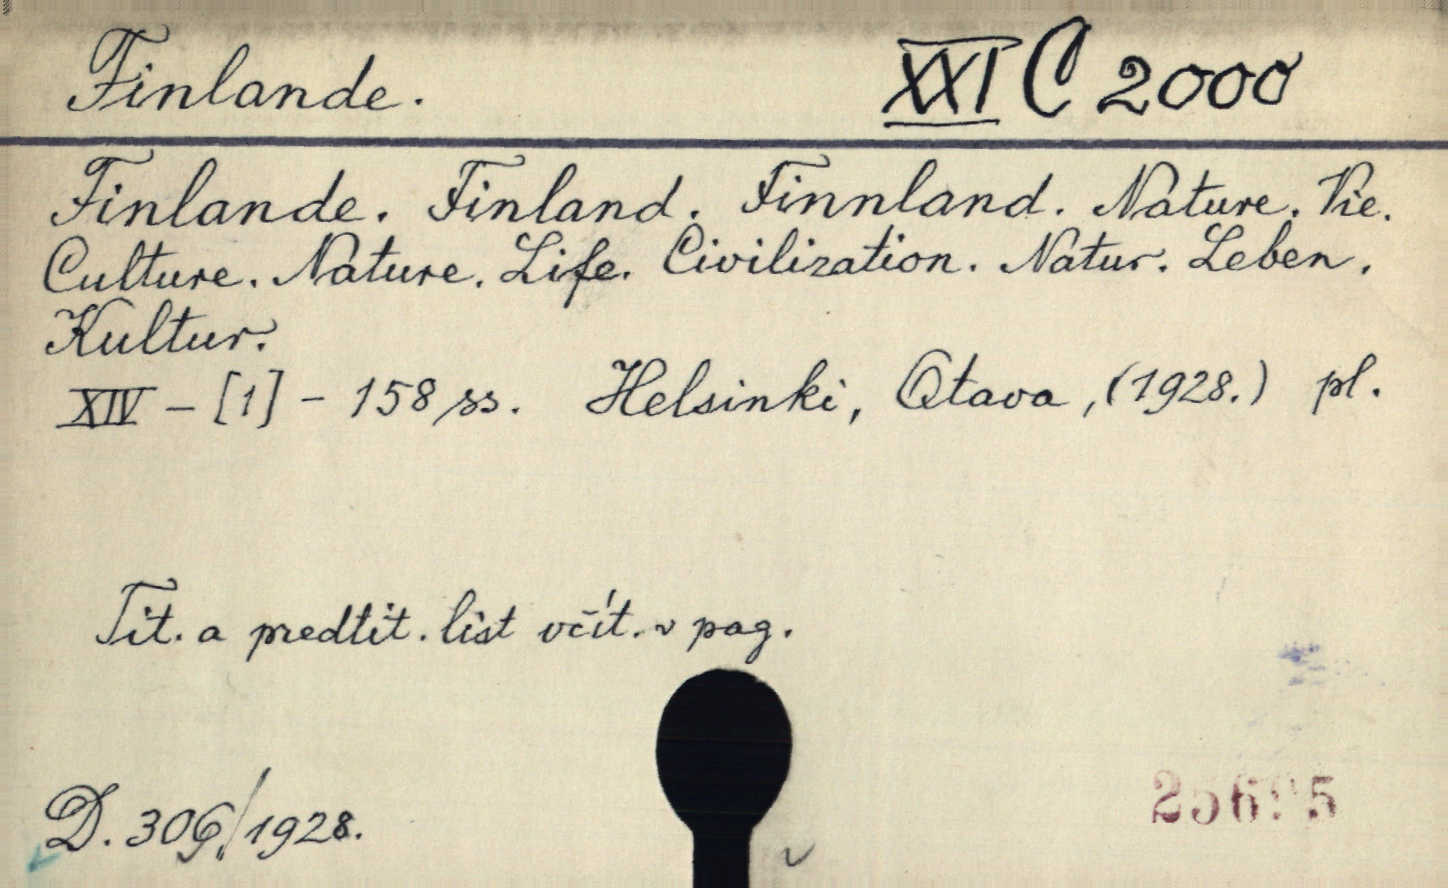 Finlande. XXI C 2000
Finlande. Finland. Finnland. Nature. Vie.
Culture. Nature. Life. Civilization. Natur. Leben.
Kultur.
XIV - [1] - 158 ss. Helsinki, Otava, (1928.) pl.
Tit. a predtit. list včít. v pag.
D. /1928.